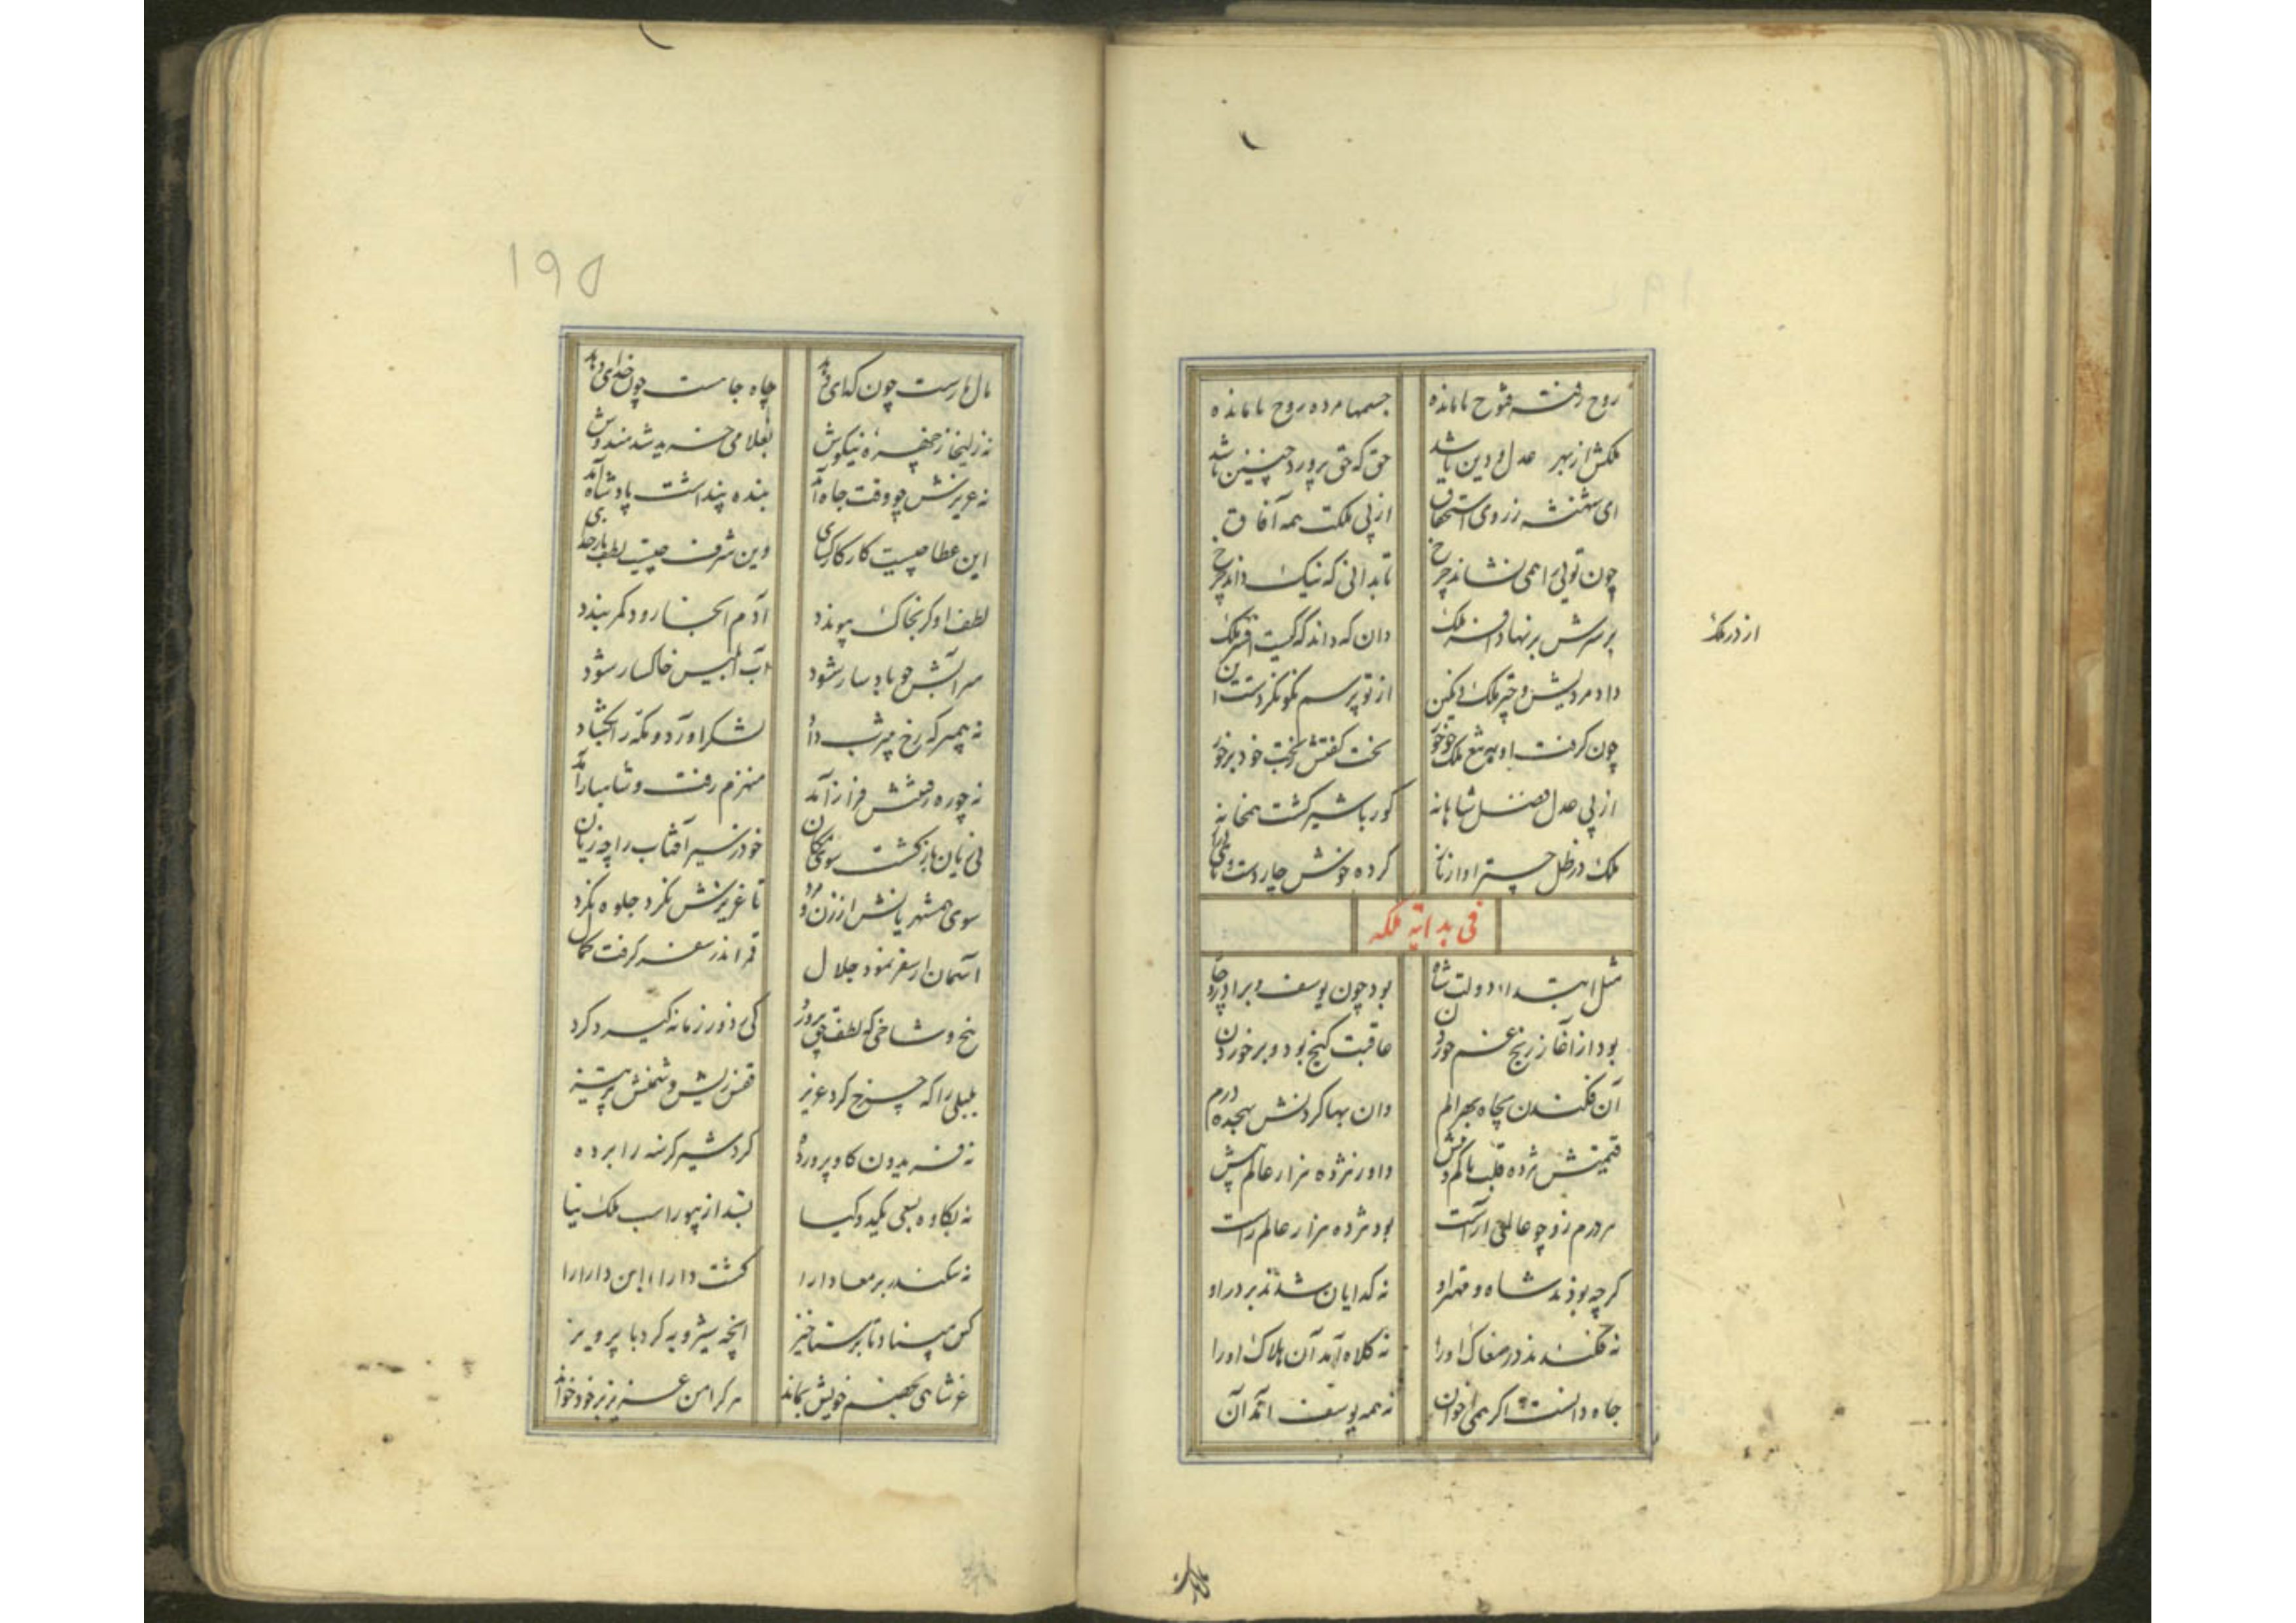 روح رفته فتوح نامانده جسمها مرده روح نامانده
ملکش از بهر عدل و دین باشد حق که حق پرورد چنین باشد
ای شهنشه ز روی استحقاق از پی ملکت همه آفاق
چون تویی را همی نشاند چرخ تا بدانی که نیک داند چرخ
بر سرش بر نهاد افسر ملک دان که داند که کیست افسر ملک
از در ملک
داد مردیش و چتر ملک و نکین از تو پرسم نکو نکردست این
چون کرفت او بتیغ ملک چو خور بخت کفتش ز بخت خود برخور
از پی عدل و فضل شاهانه کور با شیر کشت همخانه
ملک در ظل چتر او از ناز کرده خوش چار دست و پای
فی بدایة ملکه
مثل ابتداء دولت شاه بود چون یوسف و برادر و چاه
بود از آغاز رنج و غم خوردن عاقبت کنج بود و برخوردن
آن فکندن بچاه بهر الم وان بها کردنش بهجده درم
قیمتش هژده قلب با کم دانش داور هژده هزار عالم
هر درم زو چو عالمی آراست بود هژده هزار عالم راست
کرچه بودند شاه و مهتر او نه کدایان شدند بر در او
نه فکندند در مغاک او را نه کلاه آمد آن هلاک او را
جاه دانست اکر همی اخوان نه همه یوسف آمد آن
۱۶۵
مال مارست چون کدای دهد چاه جاهست چون خدای دهد
نه زلیخا ز حجره نیکوش بغلامی خرید شد هندوش
نه عزیزش چو وقت جاه آمد بنده پنداشت پادشاه آمد
این عطا چیست کار کار کرای وین شرف چیست لطف بار خدای
لطف او کر بخاک پیوندد آدم آنجا رود کمر بندد
سر آتش چو باد سار شود آب ابلیس خاکسار شود
نه پیمبر که رخ بیثرب داد لشکر آورد و مکه را بکشاد
نه چو ره رفتنش فراز آمد منهزم رفت و شاهباز آمد
نی زیان بازکشت سوی مکان خود ز سیر آفتاب را چه زیان
سوی همشهریانش از زن و مرد تا غریبش نکرد جلوه نکرد
آسمان از سفر نمود جلال قمر اندر سفر کرفت کمال
بیخ و شاخی که لطف حق پرورد کی ز دور زمانه کیرد کرد
بلبلی را که چرخ کرد عزیز قفس زیش و شخش پرهیز
نه فریدون کاو پرورده کرد شیر کرسنه را برده
نه بکاوه بسعی یکبد و کیا بستد از بیوراسب ملک نیا
نه سکندر بر معادا را کشت دارا ابن دارا را
کس مبیناد تا برستاخیز آنچه شیرویه کرد با پرویز
عز شاهی بچشم خویش بماند هر کرا من عزیز بر خود خواند